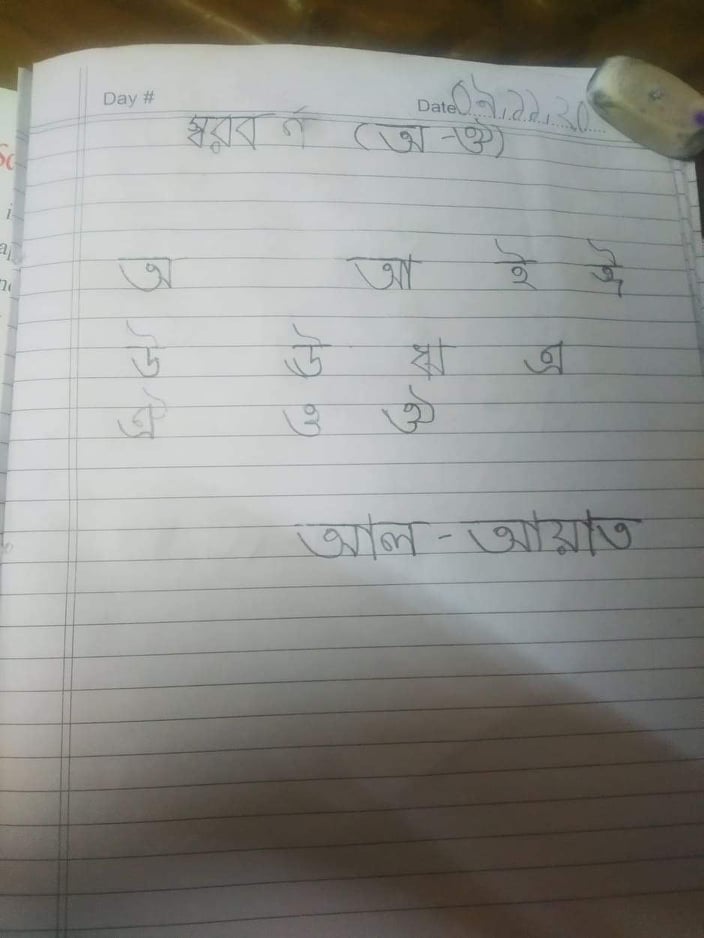 Day #
Date ০৯.১১.২০
স্বরবর্ণ (অ-ঔ)
অ আ ই ঈ
উ ঊ ঋ এ
ঐ ও ঔ
আল - আয়াত